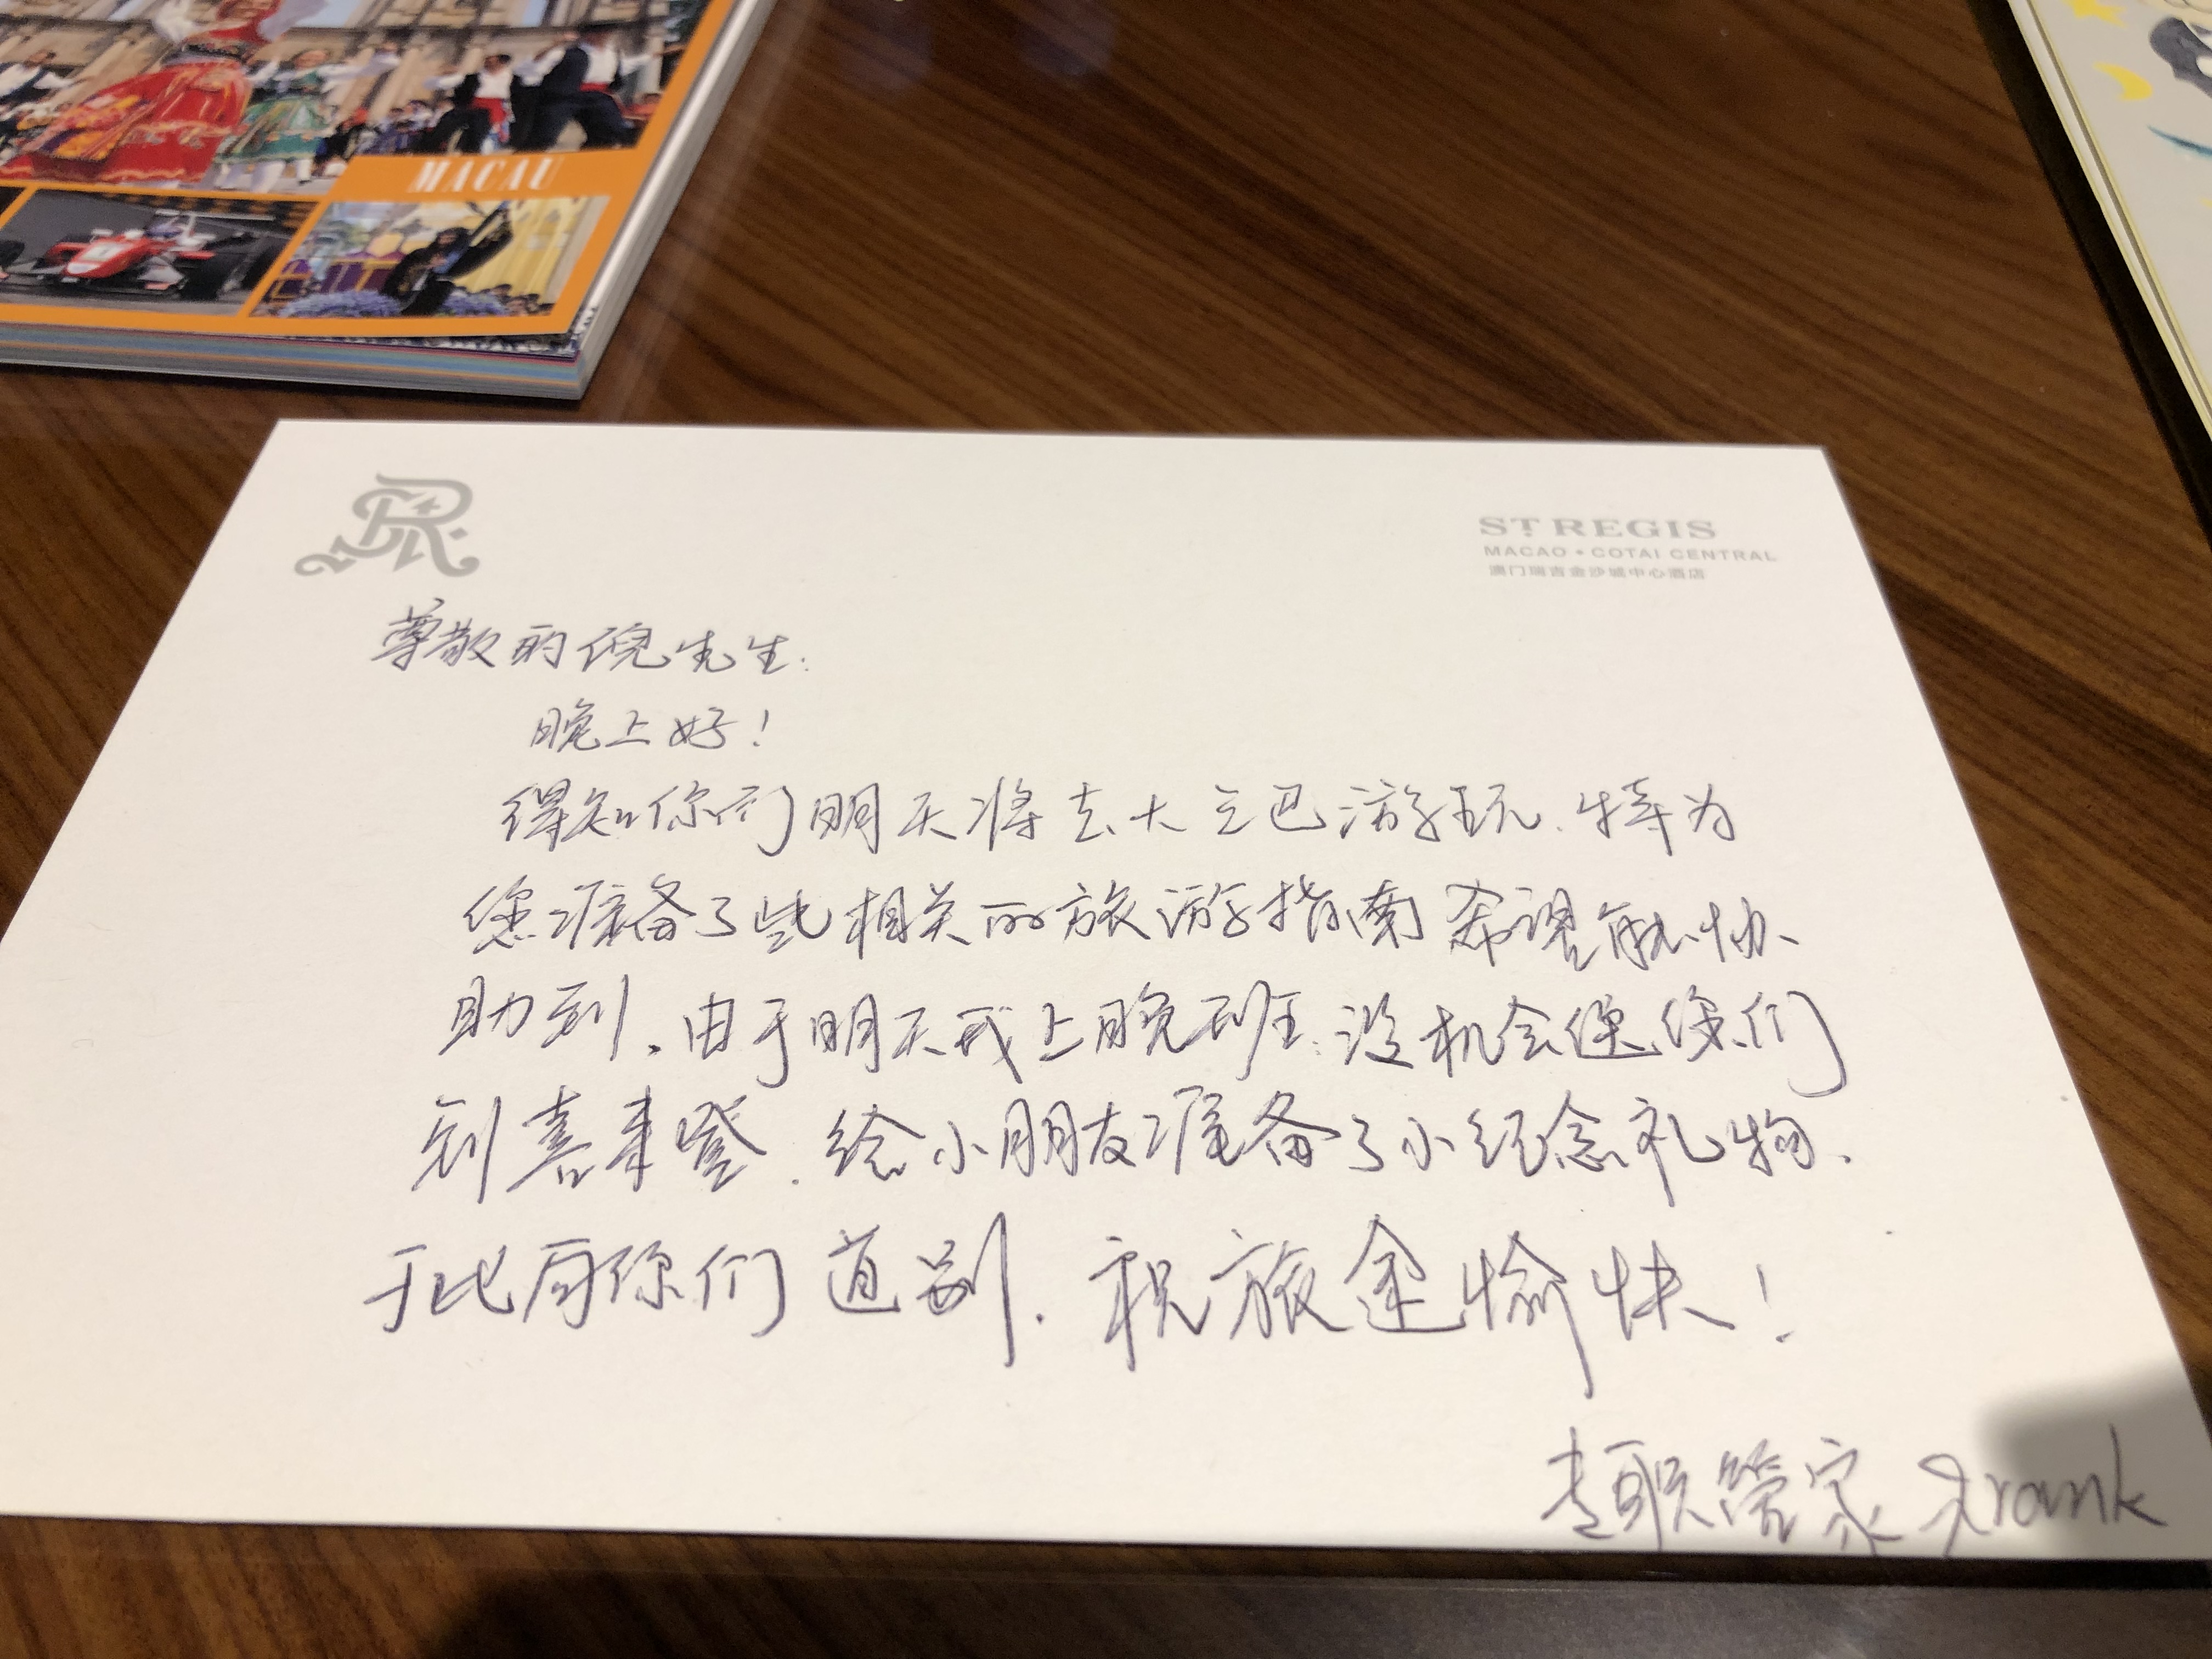 MACAU
ST. REGIS
MACAO • COTAI CENTRAL
澳门瑞吉金沙城中心酒店
尊敬的倪先生:
晚上好!
得知你们明天将去大三巴游玩.特为
您准备了些相关的旅游指南希望能协
助到.由于明天我上晚班.没机会送您们
到喜来登.给小朋友准备了小纪念礼物.
于此同你们道别.祝旅途愉快!
管家 Frank